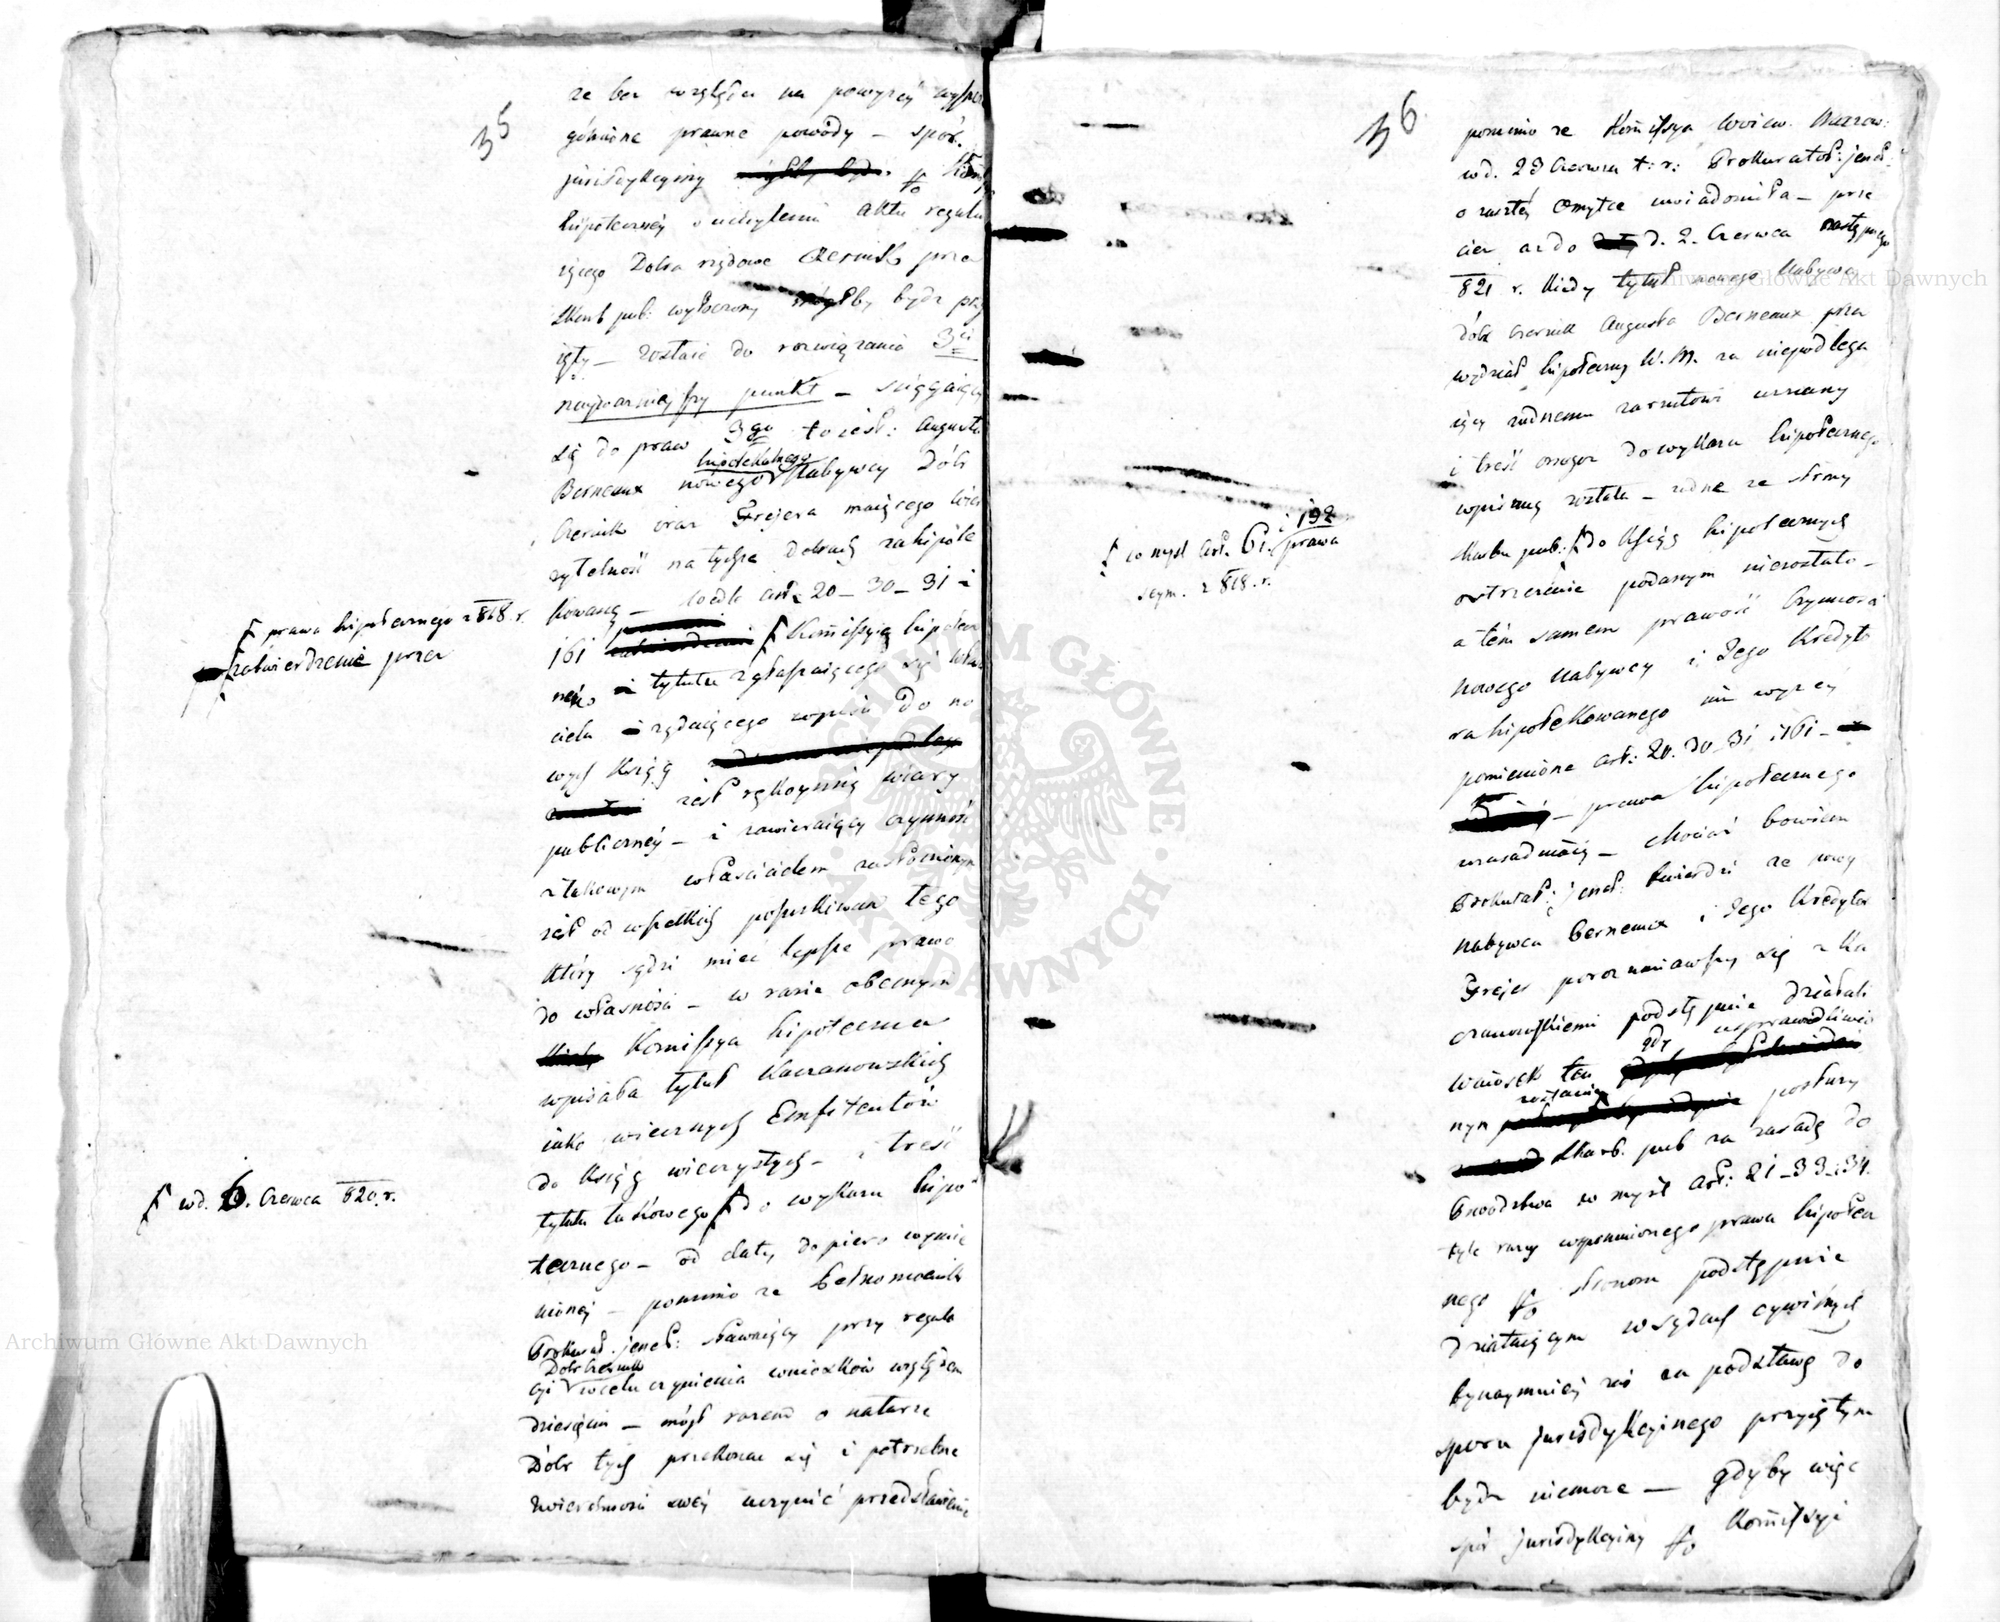 35
że bez względu na powyżey wyszcze
gólnione prawne powody – spór
jurisdykcyiny ffo Komis
hipoteczney o uchylenie aktu regulu
iącego Dobra rządowe Czernik prze
Skarb pub: wytoczony mógłby bydz przy
ięty – zostaie do rozwiązania 3ci
nayważnieyszy punkt – sciągaiący
się do praw 3go to iest: Augusta
Berneaux nowego hipotekalnego Nabywcy Dóbr
Czernik oraz Frejera maiącego wie
rzytelność na tychże dobrach zahipote
kowaną – wedle art: 20 – 30 – 31 i
161 Komissyią hipotecz
ną tytułu zgłaszaiącego się właś
ciela i żądaiącego wpisu do no
wych Ksiąg
iest rękoymią wiary
publiczney – i zawieraiący czynność
z takowym właścicielem zasłonionym
iest od wszelkich poszukiwań tego
który sądzi mieć lepsze prawo
do własności – w razie obecnym
Komissya hipoteczna
wpisała tytuł Kaczanowskich
iako wiecznych Emfiteutów
do Ksiąg wieczystych – i treść
tytułu takowego do wykazu hipo
tecznego – od daty dopiero wymie
nioney – pomimo że Pełnomocnik
Prokurat. jenel: stawaiący przy regula
cyi Dobr Czernik w celu czynienia wniosków względem
dziesięcin – mógł zarazem o naturze
Dóbr tych przekonać się i potrzebne
zwierzchności swey uczynić przedstawienie
prawa hipotecznego z 818 r.
zatwierdzenie przez
w d. 6. Czerwca 820 r.
36
pomimo że Komissya Woiew. Mazow:
w d. 23 Czerwca t: r: Prokurator: jenel:
o zaszłey omyłce uwiadomiła – prze
cież aż do d. 2. Czerwca następnego
821 r. kiedy tytuł nowego Nabywcy
dóbr Czernik Augusta Berneaux przez
wydział hipoteczny W. M. za niepodlega
iący żadnemu zarzutowi uznany
i treść onegoż do wykazu hipotecznego
wpisaną została – żadne ze strony
Skarbu pub: do Ksiąg hipotecznych
ostrzeżenie podanym niezostało –
a tém samem prawość czynności
nowego Nabywcy i Jego Kredyto
ra hipotekowanego iuż wyżey
pomienione art: 20. 30. 31 i 161 –
prawa hipotecznego
uzasadniaią – chociaż bowiem
Prokurat: jenel: twierdzi że nowy
nabywca Berneaux i Jego Kredytor
Frejer porozumiawszy się z Ka
czanowskiemi podstępnie działali
wniosek ten gdy usprawiedliwio
nym zostanie posłuży
Skarb. pub za zasadę do
Powodztwa w myśl art: 21 – 33 – i 34.
tyle razy wspomnionego prawa hipotecz
nego ffo stronom podstępnie
działaiącym w sądach cywilnych
bynaymniey zaś za podstawę do
sporu jurisdykcyinego przyiętym
bydz niemoże — gdyby więc
spór jurisdykcyiny ffo Komissyi
w myśl art. 61. i 192 prawa
seym. z 818. r.